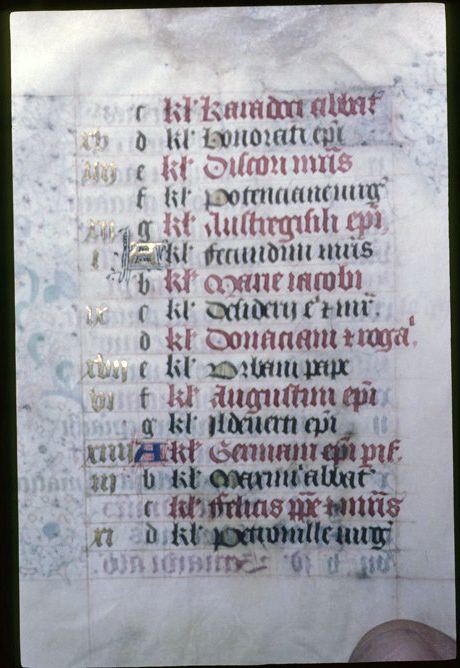 c kl' Karadoci abbat'
xv d kl' Honorati epi
iiij e kl' Discori mris
f kl' Potenciane uirg'
xii g kl' Austregisili epi
i A kl' fecundini mris
b kl' Marie iacobi
ix c kl' Desiderij e' et mr'.
d kl' Donaciani et roga'.
xvii e kl' Vrbani pape
vi f kl' Augustini epi
g kl' Ildeuerti epi
xiiii A kl' Germani epi pis.
iii b kl' Maximi abbat'
c kl' felicis ppe et mris
xi d kl' Petronille uirg'